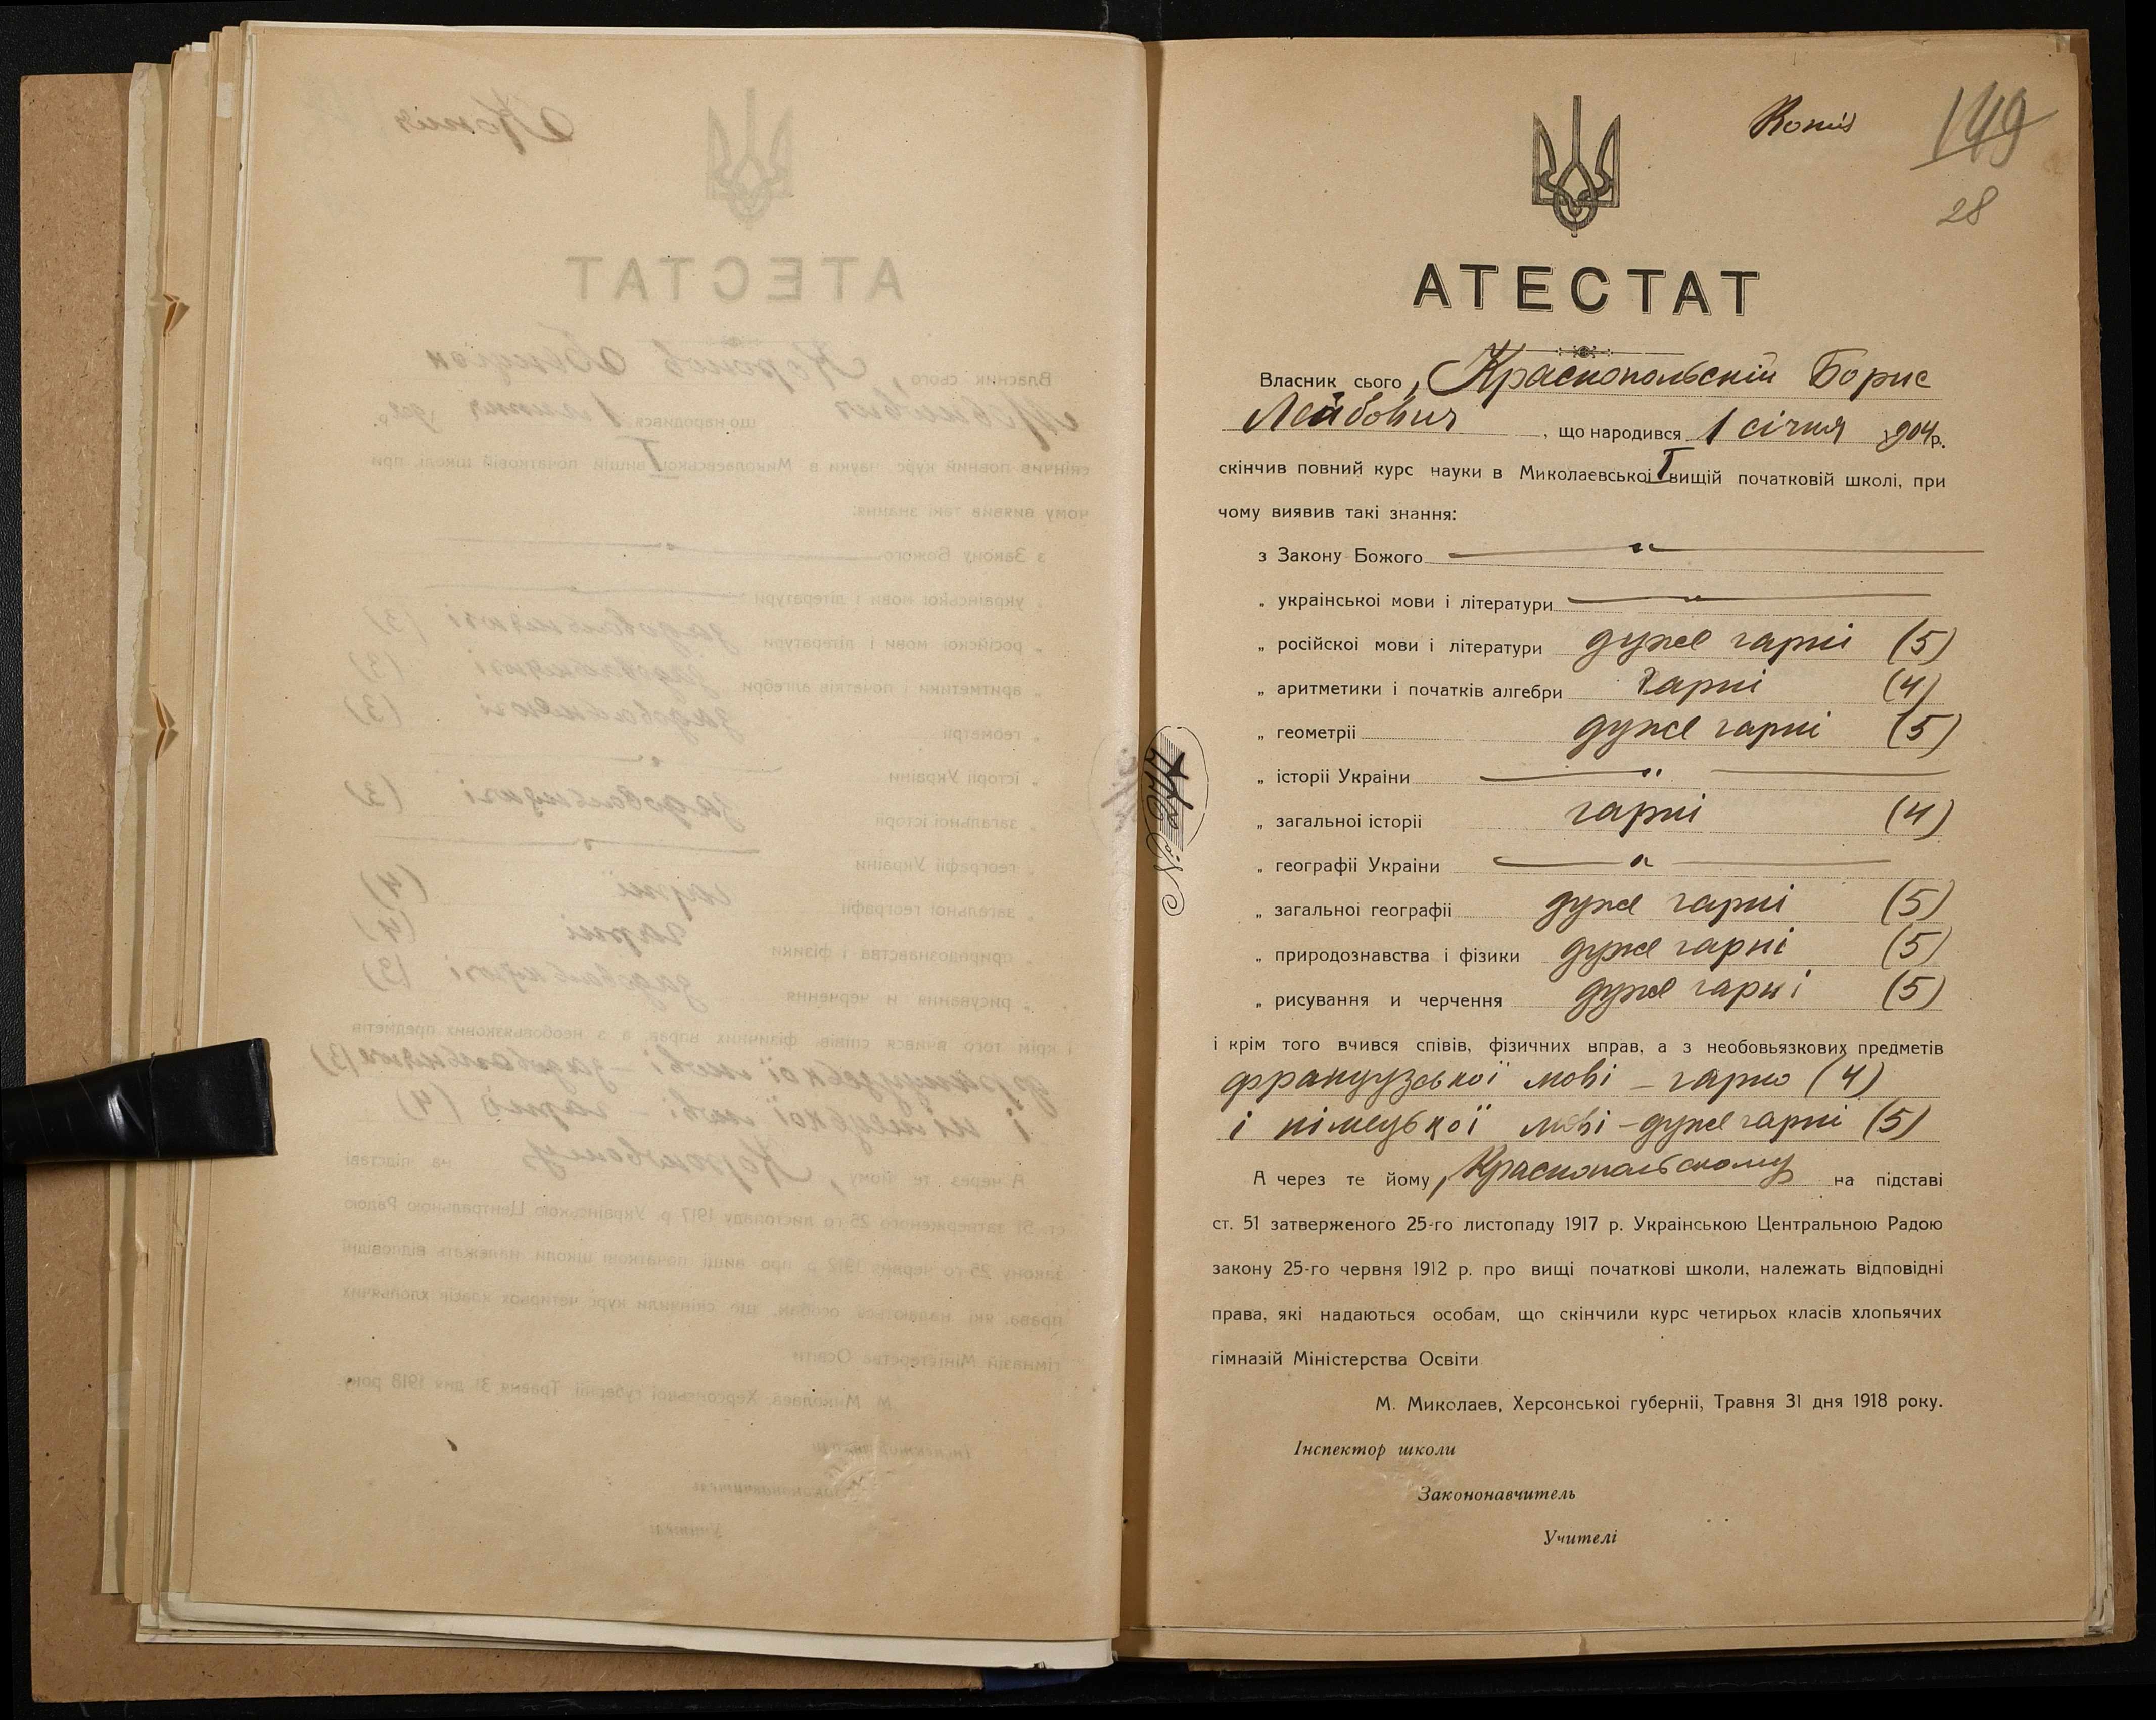 Копія
149
28
АТЕСТАТ
Власник сього, Краснопольскій Борис
Лейбович, що народився 1 січня 904 р.
скінчив повний курс науки в Миколаевськоі I вищій початковій школі, при
чому виявив такі знання:
з Закону Божого — " —
„ украінськоі мови і літератури — " —
„ російскоі мови і літератури дуже гарні (5)
„ аритметики і початків алгебри гарні (4)
„ геометріі дуже гарні (5)
„ історіі Украіни — " —
„ загальноі історіі гарні (4)
„ географіі Украіни — " —
„ загальноі географіі дуже гарні (5)
„ природознавства і фізики дуже гарні (5)
„ рисування и черчення дуже гарні (5)
і крім того вчився співів, фізичних вправ, а з необовьязкових предметів
французької мові – гарно (4)
і німецької мові – дуже гарні (5)
А через те йому, Краснопольскому на підставі
ст. 51 затверженого 25-го листопаду 1917 р. Украінською Центральною Радою
закону 25-го червня 1912 р. про вищі початкові школи, належать відповідні
права, які надаються особам, що скінчили курс четирьох класів хлопьячих
гімназій Міністерства Освіти
М. Миколаев, Херсонськоі губерніі, Травня 31 дня 1918 року.
Інспектор школи
Закононавчитель
Учителі